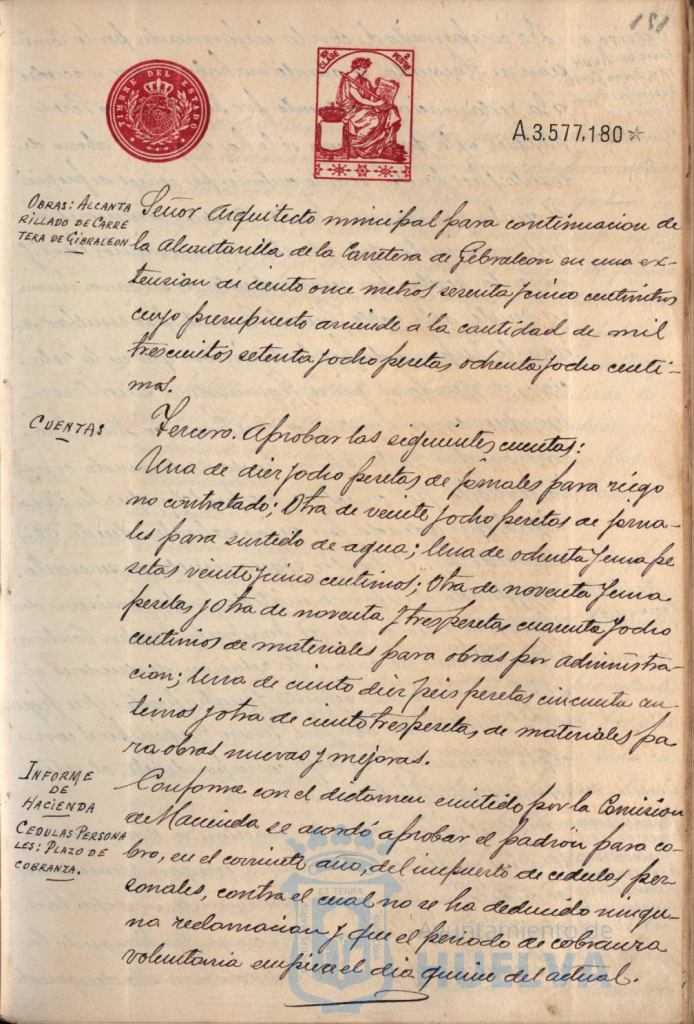 151
TIMBRE DEL ESTADO
8ª CLASE
2 PESETAS
A.3.577,180
OBRAS: ALCANTA
RILLADO DE CARRE
TERA DE GIBRALEON
Señor Arquitecto municipal para continuacion de
la Alcantarilla de la Carretera de Gibraleon en una ex-
tension de ciento once metros sesenta y cinco centimetros
cuyo presupuesto asciende á la cantidad de mil
trescientos setenta y ocho pesetas ochenta y ocho centi-
mos.
CUENTAS
Tercero. Aprobar las siguientes cuentas:
Una de diez y ocho pesetas de jornales para riego
no contratado; Otra de veinte y ocho pesetas de jorna-
les para surtido de agua; Una de ochenta y una pe
setas veinte y cinco centimos; Otra de noventa y una
pesetas y otra de noventa y tres pesetas cuarenta y ocho
centimos de materiales para obras por administra-
cion; Una de ciento diez y seis pesetas cincuenta cen
timos y otra de ciento tres pesetas, de materiales pa
ra obras nuevas y mejoras.
INFORME
DE
HACIENDA
CEDULAS PERSONA
LES: PLAZO DE
COBRANZA.
Conforme con el dictamen emitido por la Comision
de Hacienda se acordó aprobar el padrón para co-
bro, en el corriente año, del impuesto de cedulas per-
sonales, contra el cual no se ha deducido ningu-
na reclamacion y que el periodo de cobranza
voluntaria empiece el dia quince del actual.
Ayuntamiento de
HUELVA